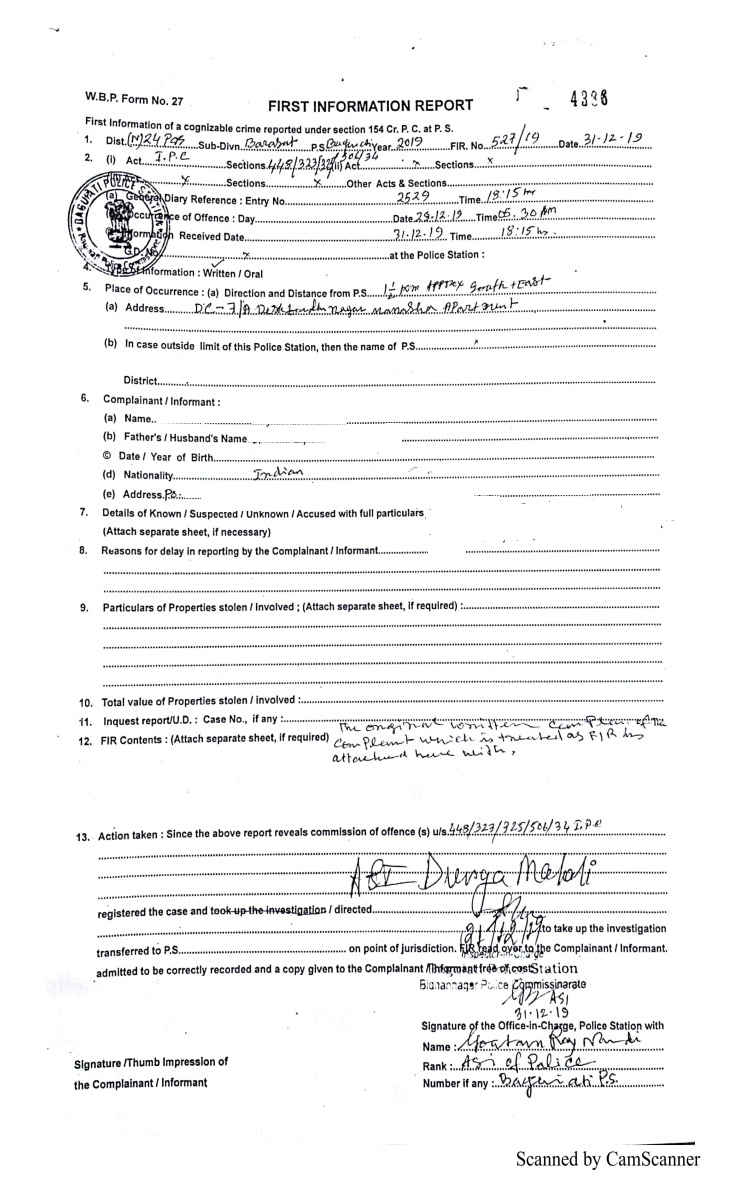 W.B.P. Form No. 27
FIRST INFORMATION REPORT
4336
First Information of a cognizable crime reported under section 154 Cr. P. C. at P. S.
1. Dist. (N) 24 PGS Sub-Divn. Barasat P.S. Baguiati Year. 2019 FIR. No. 527/19 Date. 31-12-19
2. (i) Act. I.P.C Sections. 448/323/325/506/34 (ii) Act. x Sections x
x Sections x Other Acts & Sections
(a) General Diary Reference : Entry No. 2529 Time. 18:15 hr
Occurrence of Offence : Day Date 29.12.19 Time 05.30 pm
Information Received Date 31.12.19 Time 18:15 hrs.
G.D. x at the Police Station :
BAGUIATI POLICE STATION
4. Type of Information : Written / Oral
5. Place of Occurrence : (a) Direction and Distance from P.S. 1 1/2 km Approx South + East
(a) Address DC-7/A Deshbandhu nagar manasha Apartment
(b) In case outside limit of this Police Station, then the name of P.S. x
District
6. Complainant / Informant :
(a) Name
(b) Father's / Husband's Name
© Date / Year of Birth
(d) Nationality Indian
(e) Address P.O.:
7. Details of Known / Suspected / Unknown / Accused with full particulars
(Attach separate sheet, if necessary)
8. Reasons for delay in reporting by the Complainant / Informant
9. Particulars of Properties stolen / Involved ; (Attach separate sheet, if required) :
10. Total value of Properties stolen / involved :
11. Inquest report/U.D. : Case No., if any :
12. FIR Contents : (Attach separate sheet, if required) The original written complain of the
complent which is treated as FIR is
attached here with,
13. Action taken : Since the above report reveals commission of offence (s) u/s. 448/323/325/506/34 I.P.C
ASI Durga Mahali
registered the case and took up the investigation / directed
31/12/19 to take up the investigation
transferred to P.S. on point of jurisdiction. FIR read over to the Complainant / Informant.
Inspector-in-Charge
admitted to be correctly recorded and a copy given to the Complainant / Informant free of cost
Station
Bidhannagar Police Commissinarate
ASI
31.12.19
Signature of the Office-in-Charge, Police Station with
Name : Goutam Ray Nandi
Signature /Thumb Impression of
Rank : ASI of Police
the Complainant / Informant
Number if any : Baguiati P.S.
Scanned by CamScanner